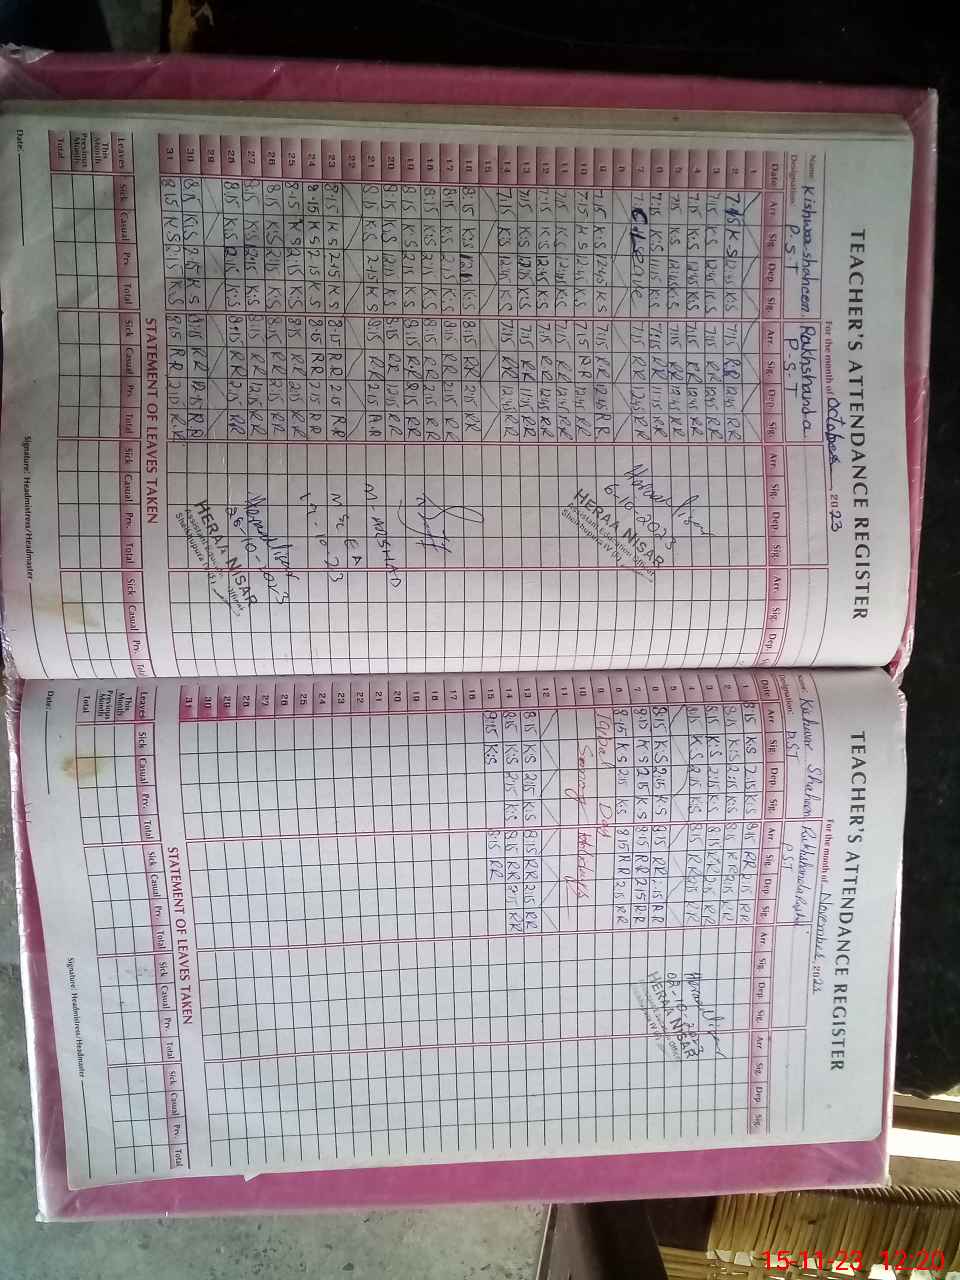 TEACHER'S ATTENDANCE REGISTER
For the month of October, 2023
Name: Kishwar shaheen Rakhshanda
Designation: P.S.T P-S-T
Date Arr. Sig. Dep. Sig. Arr. Sig. Dep. Sig. Arr. Sig. Dep. Sig. Arr. Sig. Dep.
1
2 7:15 K S 12:45 K.S 7:15 RR 12:45 RR
3 7:15 K S 12:45 K.S 7:15 RR 12:45 RR
4 7:15 K.S 12:45 K.S 7:15 RR 12:45 RR
5 7:15 K.S 12:45 K.S 7:15 RR 12:45 RR
6 7:15 K.S 11:15 K.S 7:15 RR 11:15 RR
7 7:15 RR 12:45 RR
8
9 7:15 K.S 12:45 K S 7:15 RR 12:45 RR
10 7:15 K S 12:45 K.S 7:15 RR 12:45 RR
11 7:15 K.S 12:45 K.S 7:15 RR 12:45 RR
12 7:15 K.S 12:45 K.S 7:15 RR 12:45 RR
13 7:15 K.S K.S 7:15 RR 11:15 RR
14 7:15 K.S 12:45 K.S 7:15 RR 12:45 RR
15
16 8:15 K.S K.S 8:15 RR 2:15 RR
17 8:15 K.S 2:15 K.S 8:15 RR 2:15 RR
18 8:15 K.S 2:15 K.S 8:15 RR 2:15 RR
19 8:15 K.S 2:15 K.S 8:15 RR 2:15 RR
20 8:15 K.S 12:15 K.S 8:15 RR 12:15 RR
21 8:15 K.S 2:15 K S 8:15 RR 2:15 RR
22
23 8:15 K S 2:15 K S 8:15 RR 2:15 RR
24 8:15 K S 2:15 K S 8:15 RR 2:15 RR
25 8:15 K S 2:15 K.S 8:15 RR 2:15 RR
26 8:15 K.S 2:15 K.S 8:15 RR 2:15 RR
27 8:15 K.S 12:15 K.S 8:15 RR 12:15 RR
28 8:15 K.S 2:15 K.S 8:15 RR 2:15 RR
29
30 8:15 K.S 2:15 K S 8:15 RR 2:15 RR
31 8:15 K S 2:15 K.S 8:15 RR 2:15 RR
6-10-2023
HERAA NISAR
Assistant Education Officer
Sheikhupura IV (W)
M-ARSHAD
10-23
26-10-2023
HERAA NISAR
Assistant Education Officer
Sheikhupura IV (W)
STATEMENT OF LEAVES TAKEN
Leaves Sick Casual Prv. Total Sick Casual Prv. Total Sick Casual Prv. Total Sick Casual Prv.
This Month
Previous Month
Total
Date: Signature: Headmistress/Headmaster
TEACHER'S ATTENDANCE REGISTER
For the month of November, 2023
Name: Kishwar Shaheen Rukhshanda
Designation: PST PST
Date Arr. Sig. Dep. Sig. Arr. Sig. Dep. Sig. Arr. Sig. Dep. Sig. Arr. Sig. Dep. Sig.
1 8:15 K.S 2:15 K.S 8:15 RR 2:15 RR
2 8:15 K.S 2:15 K.S 8:15 RR 2:15 RR
3 8:15 K.S 2:15 K.S 8:15 RR 2:15 RR
4 8:15 K.S 2:15 K.S 8:15 RR 2:15 RR
5
6 8:15 K.S 2:15 K.S 8:15 RR 2:15 RR
7 8:15 K S 2:15 K S 8:15 RR 2:15 RR
8 8:15 K S 2:15 K.S 8:15 RR 2:15 RR
9 Iqbal Day
10 Smog Holidays
11
12
13 8:15 K S 2:15 K.S 8:15 RR 2:15 RR
14 8:15 K.S 2:15 K.S 8:15 RR 2:15 RR
15 8:15 K.S 8:15 RR
16
17
18
19
20
21
22
23
24
25
26
27
28
29
30
31
HERAA NISAR
STATEMENT OF LEAVES TAKEN
Leaves Sick Casual Prv. Total Sick Casual Prv. Total Sick Casual Prv. Total Sick Casual Prv. Total
This Month
Previous Month
Total
Date: Signature: Headmistress/Headmaster
15-11-23 12:20